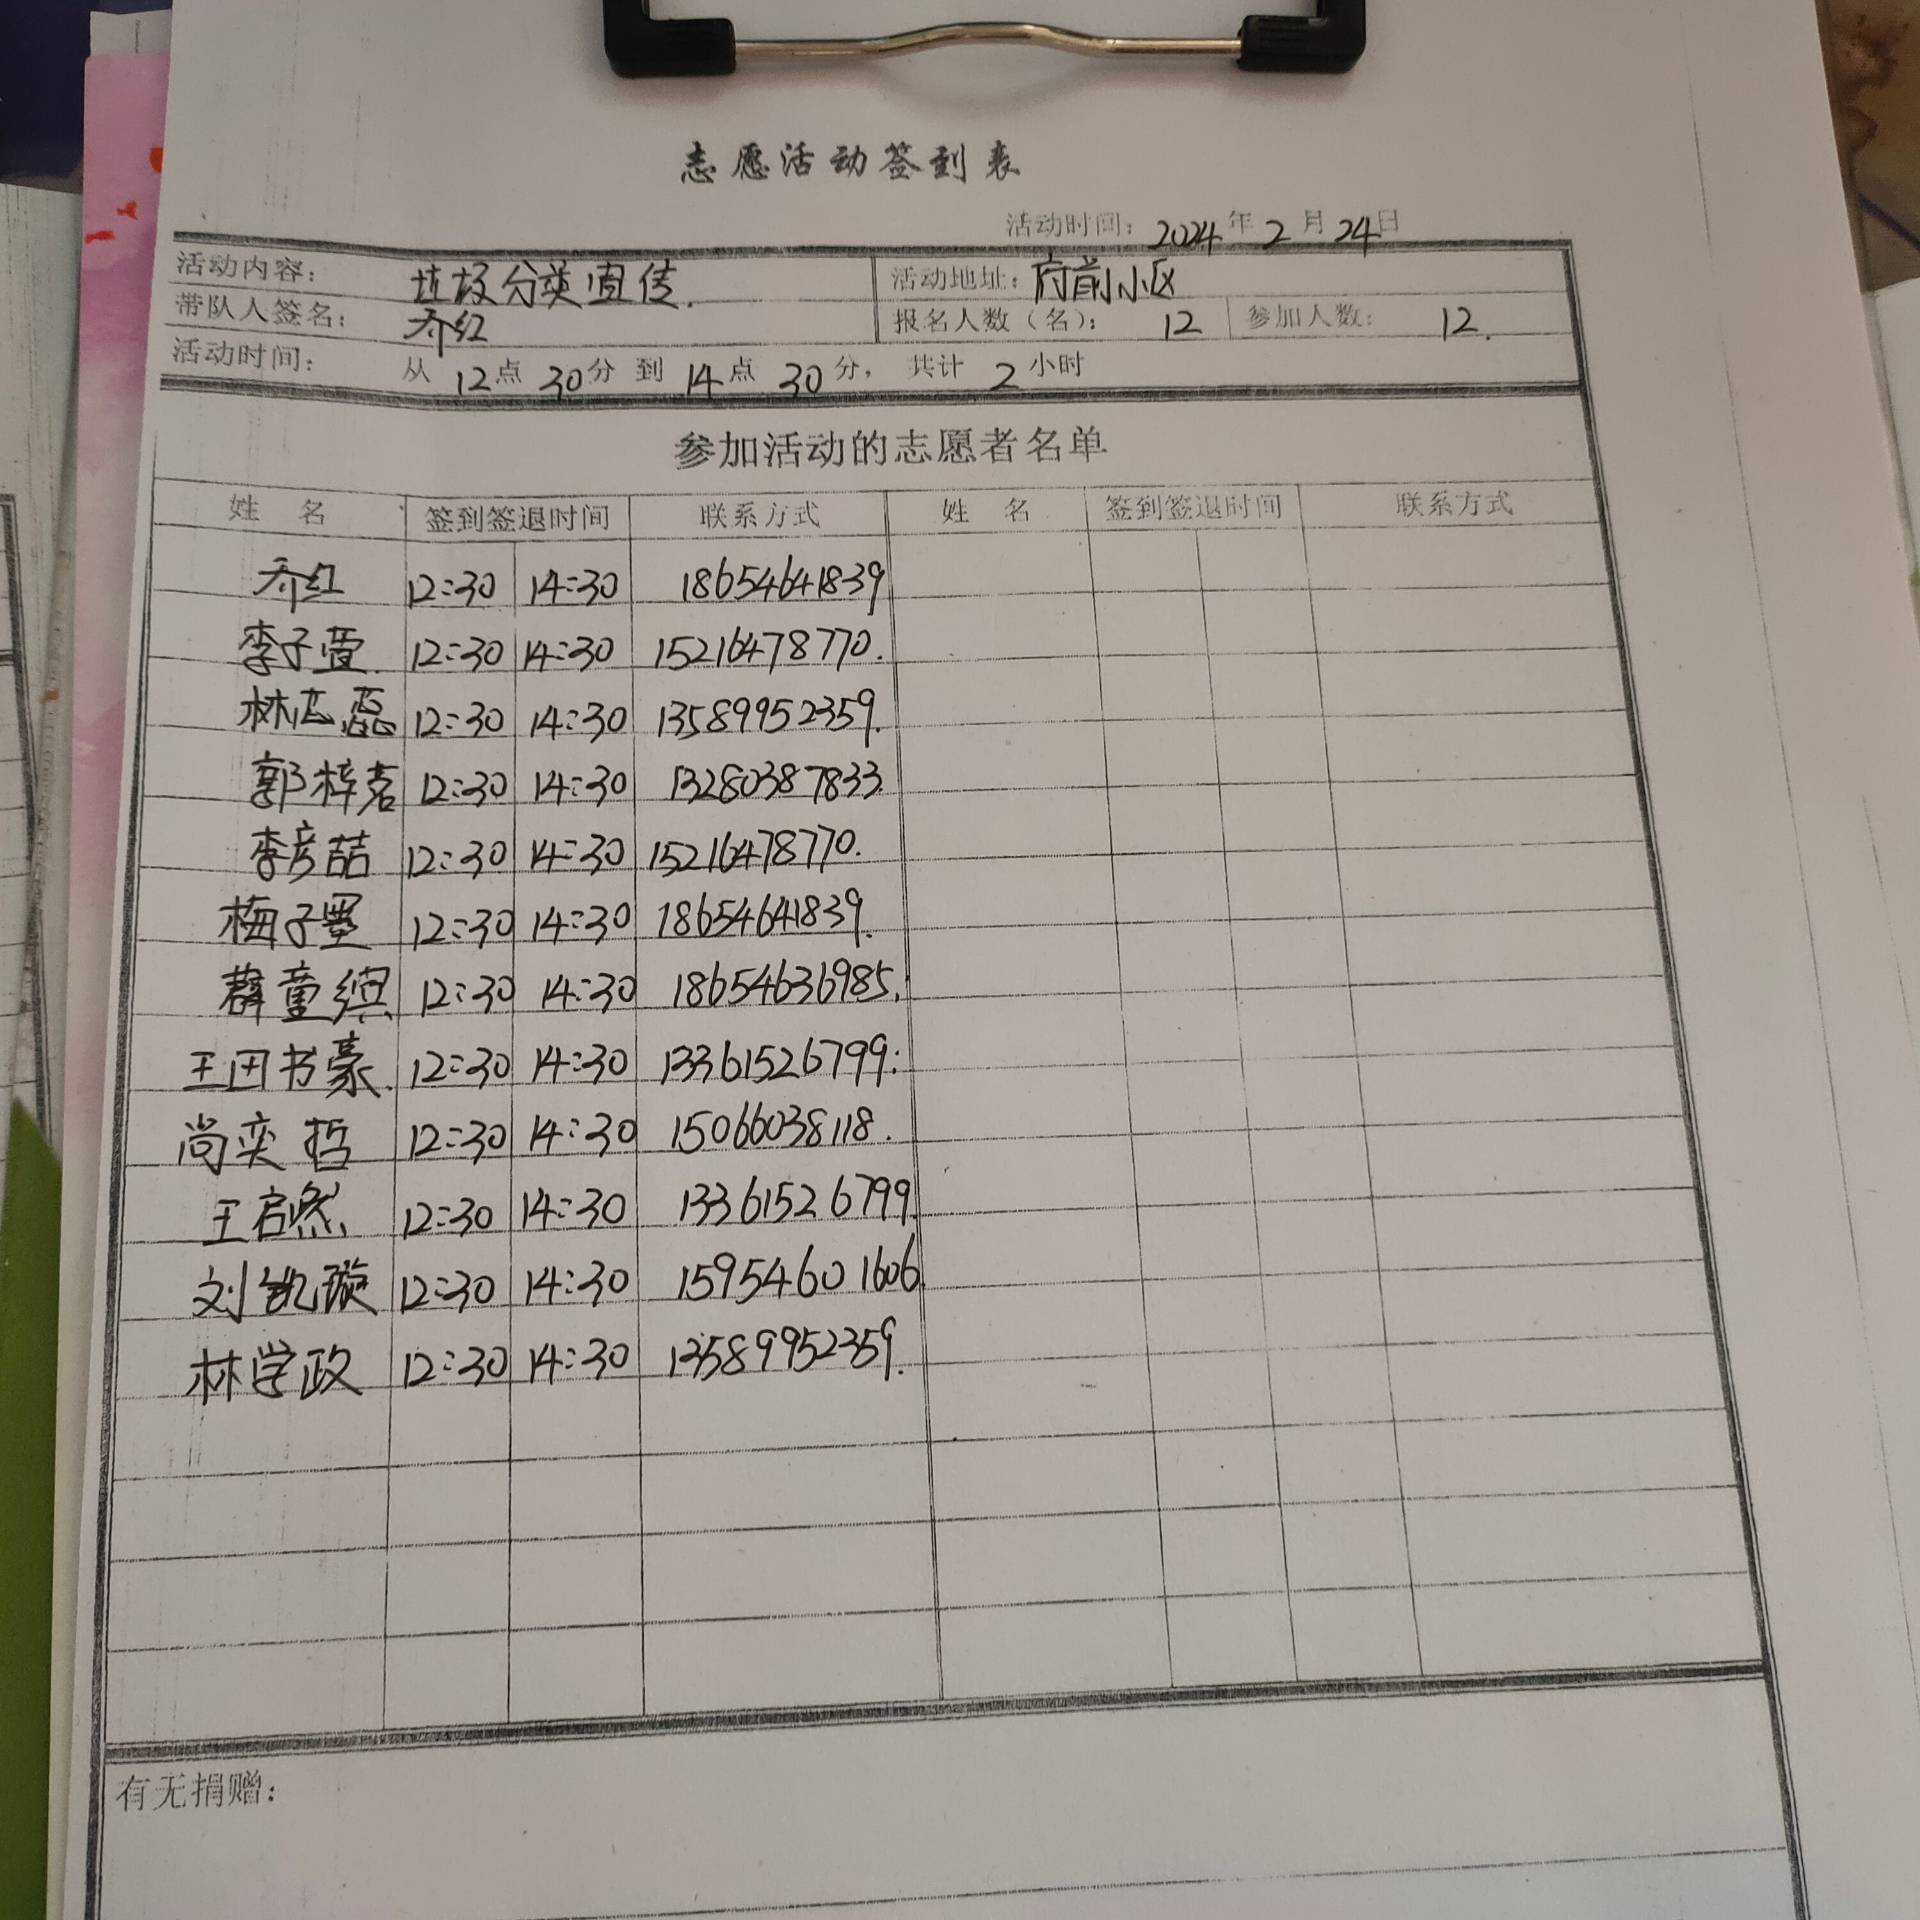 志愿活动签到表
活动时间：2024年2月24日
活动内容：垃圾分类宣传. 活动地址：府前小区
带队人签名：乔红 报名人数（名）：12 参加人数：12.
活动时间：从12点30分到14点30分，共计2小时
参加活动的志愿者名单
姓名 签到签退时间 联系方式 姓名 签到签退时间 联系方式
乔红 12:30 14:30 18654641839
李子萱 12:30 14:30 15216478770.
林芯蕊 12:30 14:30 13589952359.
郭梓茗 12:30 14:30 13280387833.
李彦喆 12:30 14:30 15216478770.
梅子墨 12:30 14:30 18654641839.
薛童缤 12:30 14:30 18654636985.
王田书豪. 12:30 14:30 13361526799.
尚奕哲 12:30 14:30 15066038118.
王启然 12:30 14:30 13361526799.
刘凯璇 12:30 14:30 15954601606.
林学政 12:30 14:30 13589952359.
有无捐赠：